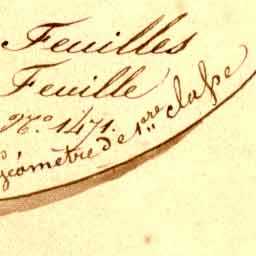 Feuilles
Feuille
N.º 1471.
géomètre de 1.ère claſse